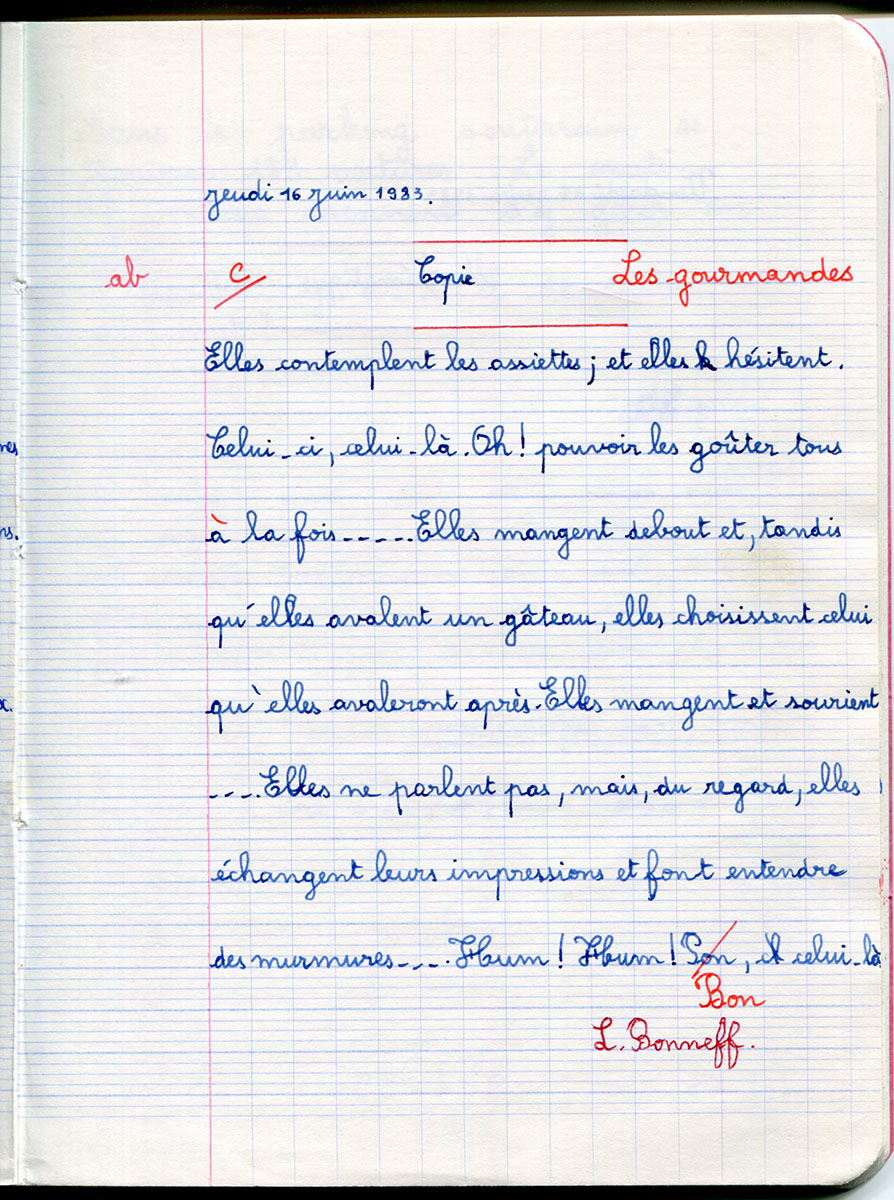 jeudi 16 juin 1983.
ab C Copie Les gourmandes
Elles contemplent les assiettes ; et elles hésitent.
Celui-ci, celui-là. Oh ! pouvoir les goûter tous
à la fois..... Elles mangent debout et, tandis
qu'elles avalent un gâteau, elles choisissent celui
qu'elles avaleront après. Elles mangent et sourient
.... Elles ne parlent pas, mais, du regard, elles
échangent leurs impressions et font entendre
des murmures.... Hum ! Hum ! Son, celui-là
Bon
L. Bonneff.